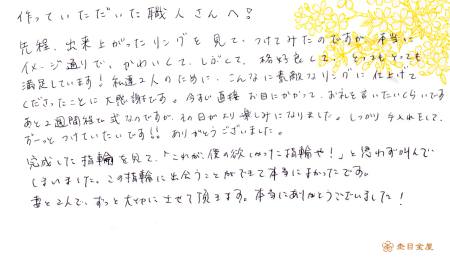 作っていただいた職人さんへ!
先程、出来上がったリングを見て、つけてみたのですが、本当に
イメージ通りで、かわいくて、しぶくて、格好良くて、とってもとっても
満足しています！私達2人のために、こんなに素敵なリングに仕上げて
くださったことに大感謝です。今すぐ直接お目にかかって、お礼を言いたいくらいです
あと2週間程で式なのですが、その日がより楽しみになりました。しっかり手入れをして、
ずーっとつけていたいです!! ありがとうございました。
完成した指輪を見て、「これが、僕の欲しかった指輪や！」と思わず叫んで
しまいました。この指輪に出会うことができて本当によかったです。
妻と2人で、ずっと大切にさせて頂きます。本当にありがとうございました！
杢目金屋